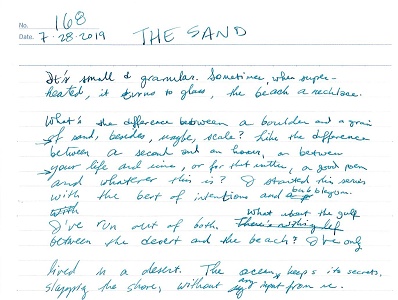 No. 168
Date. 7-28-2019 THE SAND
It's small & granular. Sometimes, when super-
heated, it turns to glass, the beach a necklace.
What's the difference between a boulder and a grain
of sand, besides, maybe, scale? Like the difference
between a second and an hour, or between
your life and mine, or for that matter, a good poem
and whatever this is? I started this series
with the best of intentions and a bubblegum.
with What about the gulf
I've run out of both. There's nothing left
between the desert and the beach? I've only
lived in a desert. The ocean keeps its secrets,
slapping the shore, without any input from me.